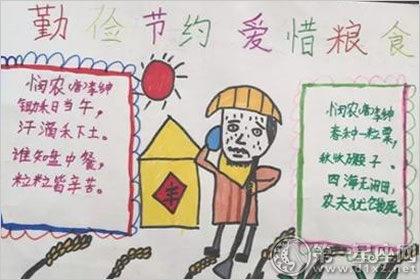 勤俭节约 爱惜粮食
悯农 唐李绅
锄禾日当午，
汗滴禾下土。
谁知盘中餐，
粒粒皆辛苦。
丰
悯农 唐李绅
春种一粒粟，
秋收 子。
四海无闲田，
农夫犹饿死。
第一星座网
www.d1xz.net